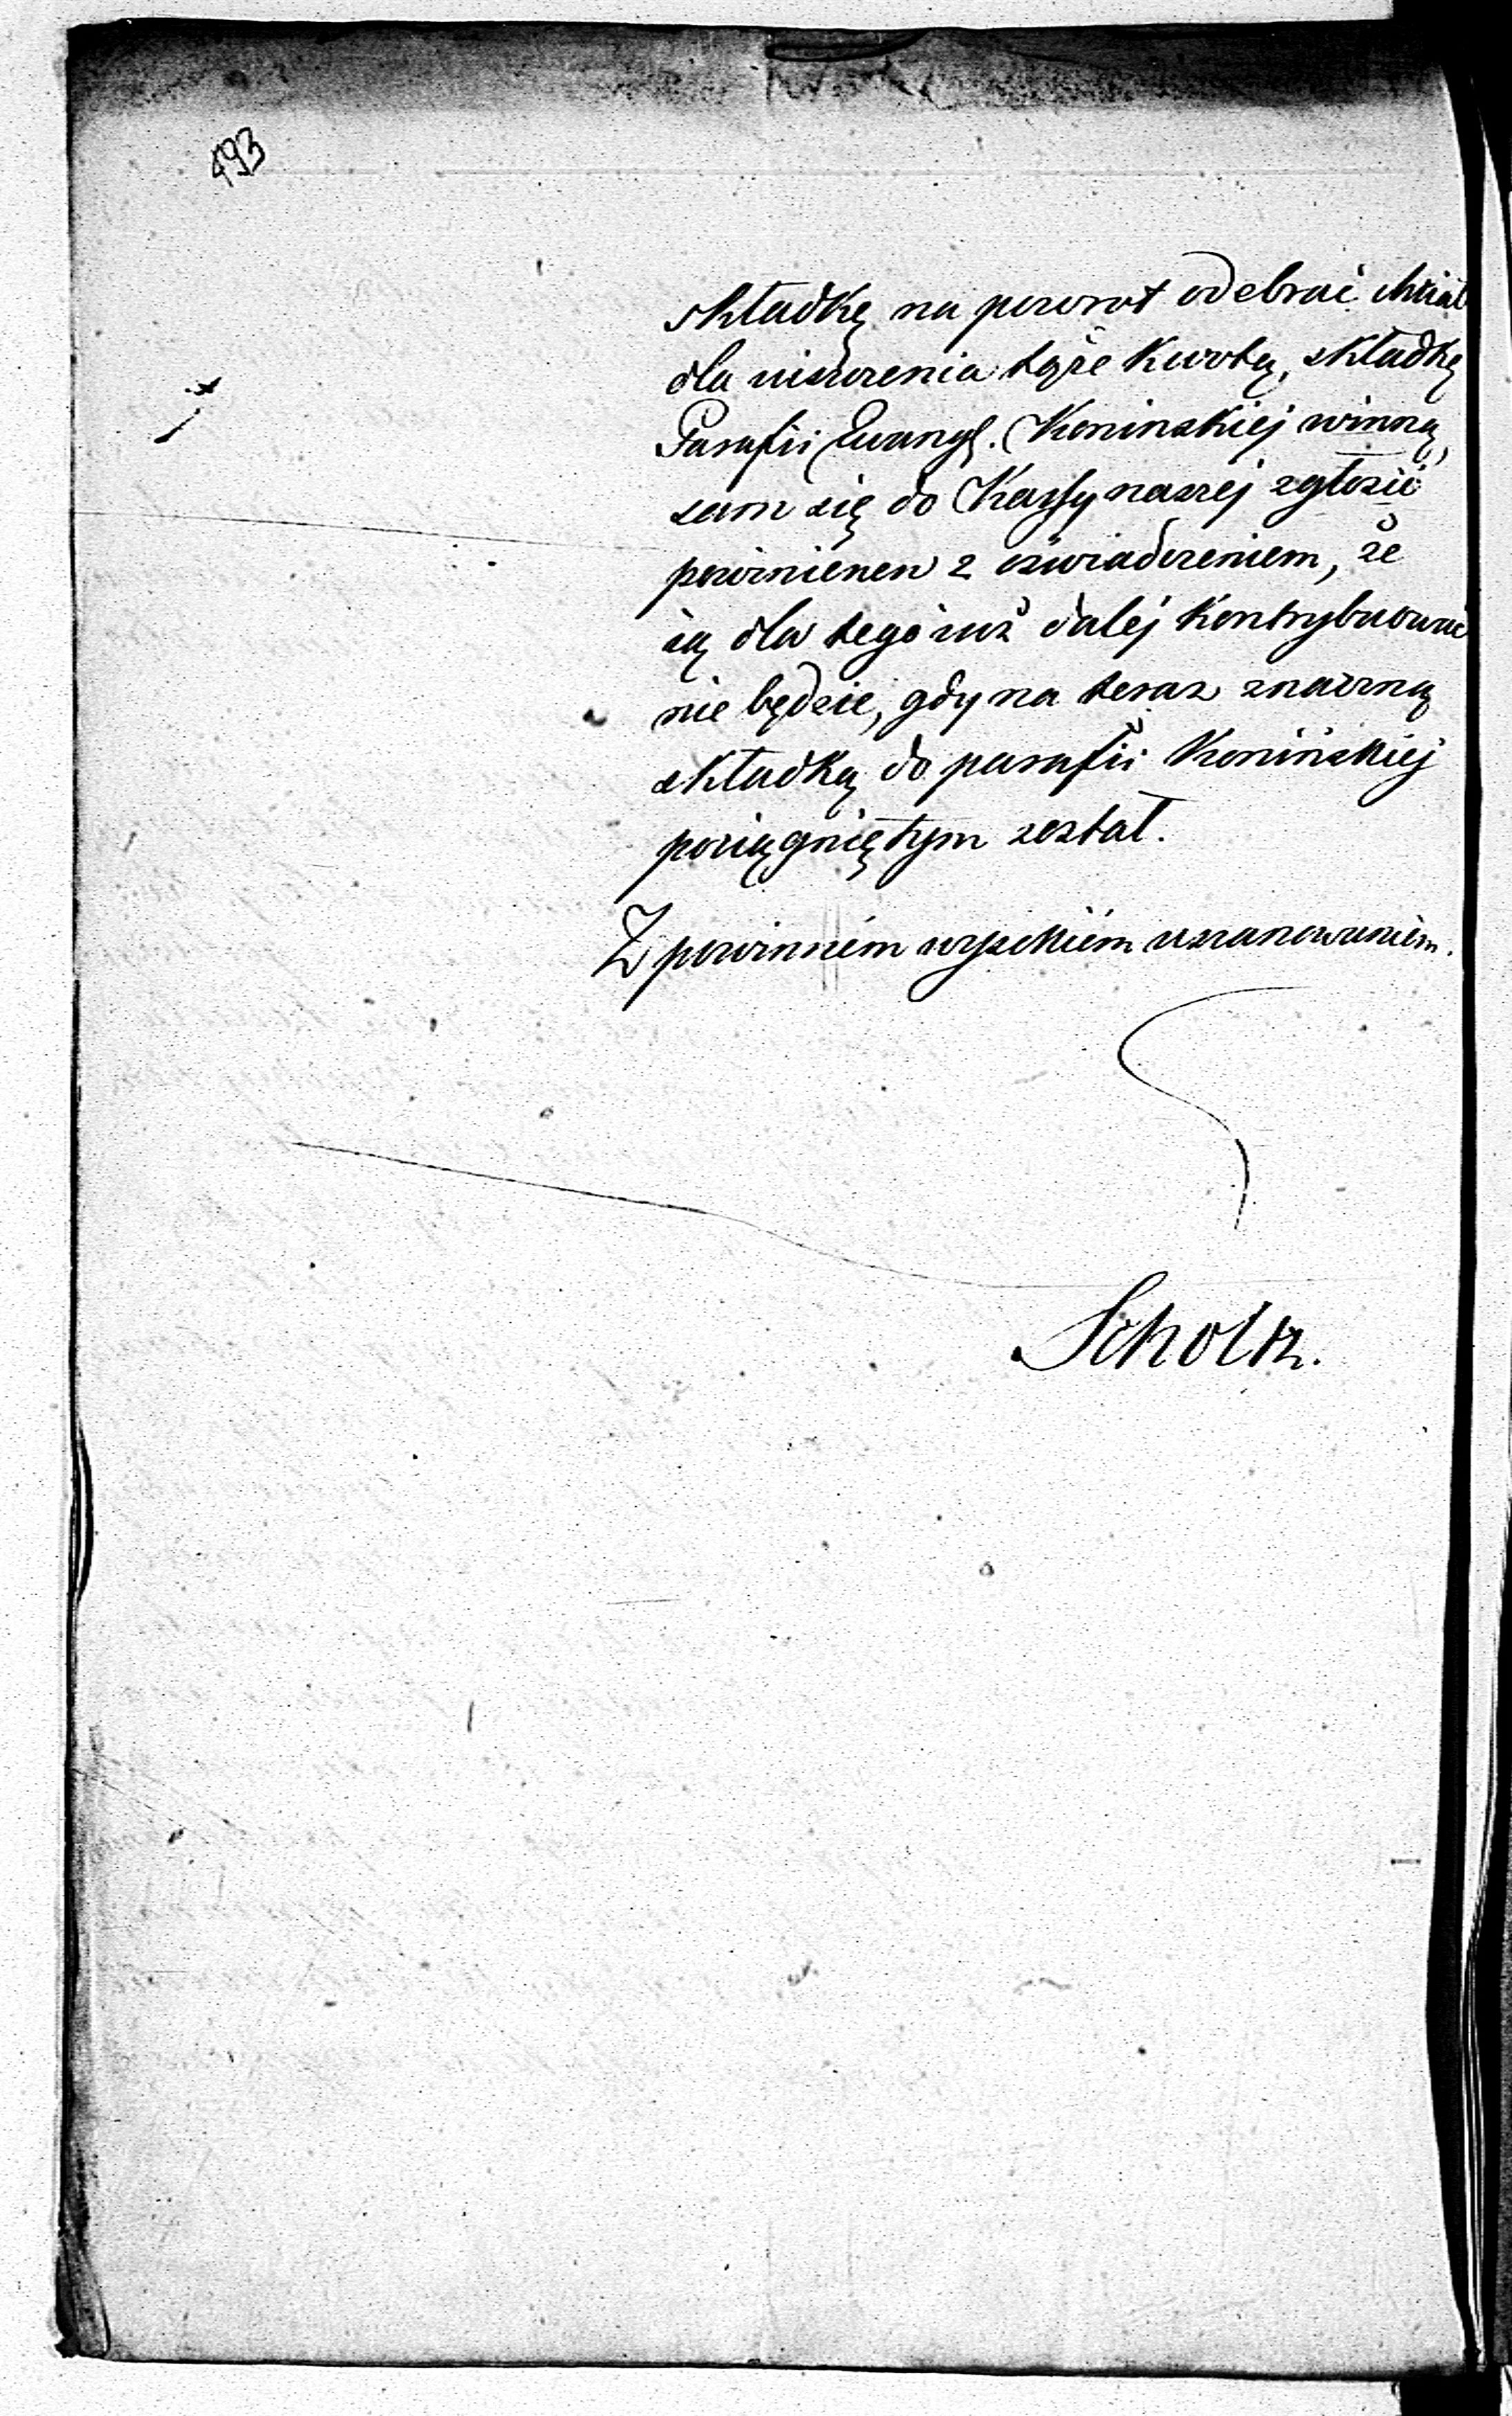 493
składkę na powrot odebrać chciał
dla uiszczenia tąże Kwotą, składkę
Parafii Ewangl. Koninskiej winną,
sam się do Kassy naszej zgłosić
powinienen z oświadczeniem, że
ią dla tego iuż dalej Kontrybuować
nie będzie, gdy na teraz znaczną
składką do parafii Konińskiej
pociągniętym został.
Z powinném wysokiém uszanowaniem.
Scholtz.